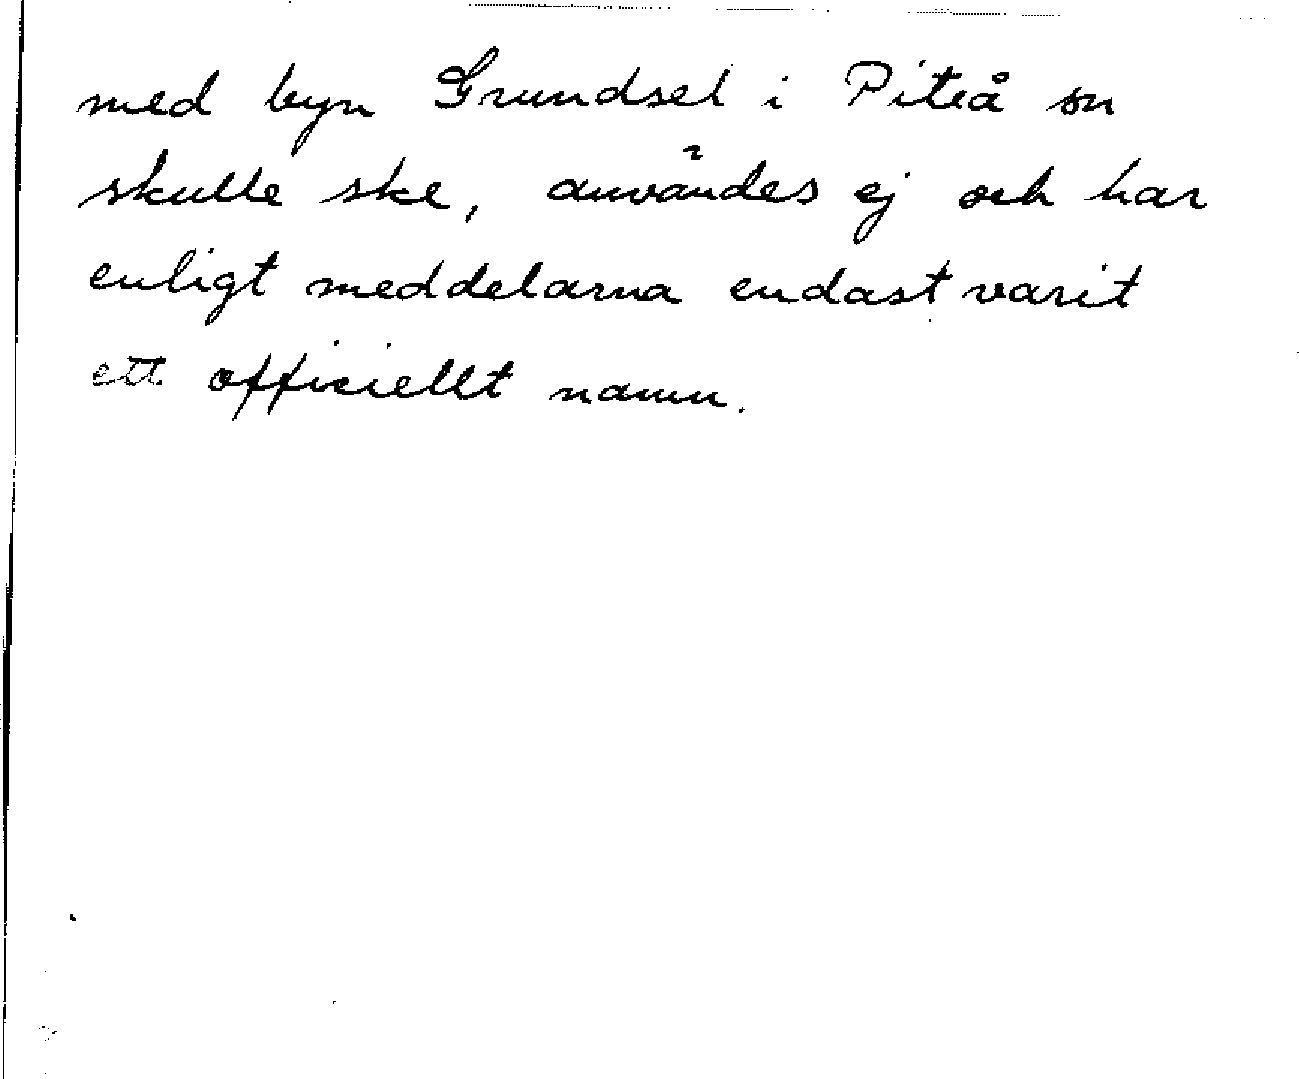 med byn Grundsel i Piteå sn
skulle ske, användes ej och har
enligt meddelarna endast varit
ett officiellt namn.